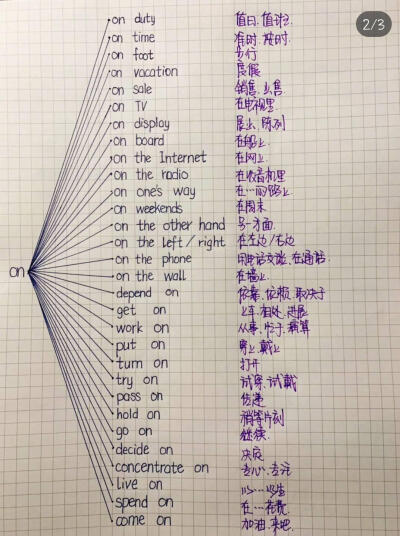 2/3
on duty 值日、值班
on time 准时、按时
on foot 步行
on vacation 度假
on sale 销售、出售
on TV 在电视里
on display 展出、陈列
on board 在船上
on the Internet 在网上
on the radio 在收音机里
on one's way 在…的路上
on weekends 在周末
on the other hand 另一方面
on the left/right 在左边/右边
on the phone 用电话交谈、在通话
on
on the wall 在墙上
depend on 依靠、依赖、取决于
get on 上车、相处、进展
work on 从事、忙于、演算
put on 穿上、戴上
turn on 打开
try on 试穿、试戴
pass on 传递
hold on 稍等片刻
go on 继续
decide on 决定
concentrate on 专心、专注
live on 以…为生
spend on 在…花费
come on 加油、来吧